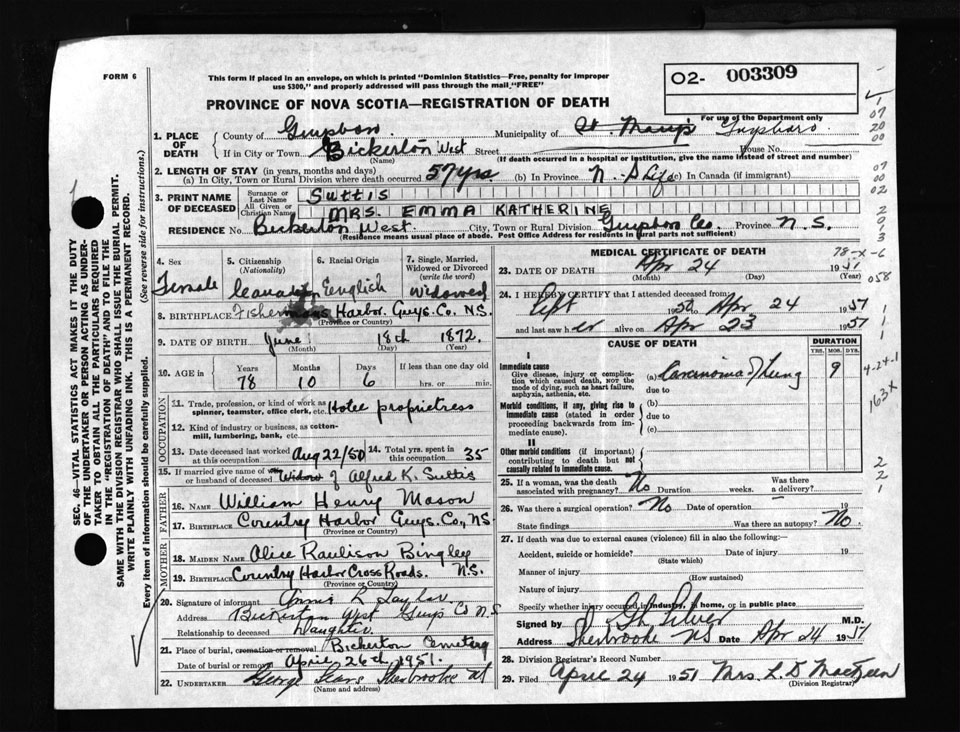 FORM 6
This form if placed in an envelope, on which is printed "Dominion Statistics—Free, penalty for improper
use $300," and properly addressed will pass through the mail "FREE"
02- 003309
PROVINCE OF NOVA SCOTIA—REGISTRATION OF DEATH
For use of the Department only
1. PLACE OF DEATH
County of Guysboro. Municipality of St. Mary's Guysboro
If in City or Town Bickerton West Street House No.
(Name) (If death occurred in a hospital or institution, give the name instead of street and number)
2. LENGTH OF STAY (in years, months and days)
(a) In City, Town or Rural Division where death occurred 57 yrs (b) In Province N.S Life (c) In Canada (if immigrant)
3. PRINT NAME OF DECEASED
Surname or Last Name SUTTIS
All Given or Christian Names MRS. EMMA KATHERINE
RESIDENCE No. Bickerton West. City, Town or Rural Division Guysboro Co. Province N.S.
(Residence means usual place of abode. Post Office Address for residents in rural parts not sufficient)
4. Sex Female
5. Citizenship (Nationality) Canadian
6. Racial Origin English
7. Single, Married, Widowed or Divorced (write the word) Widowed
8. BIRTHPLACE Fishermans Harbor. Guys. Co. N.S.
(Province or Country)
9. DATE OF BIRTH June 18th 1872.
(Month) (Day) (Year)
10. AGE in Years 78 Months 10 Days 6 If less than one day old hrs. or min.
OCCUPATION
11. Trade, profession, or kind of work as spinner, teamster, office clerk, etc. Hotel proprietress
12. Kind of industry or business, as cotton-mill, lumbering, bank, etc.
13. Date deceased last worked at this occupation Aug 22/50 14. Total yrs. spent in this occupation 35
15. If married give name of wife or husband of deceased Widow of Alfred K. Suttis
FATHER
16. NAME William Henry Mason
17. BIRTHPLACE Country Harbor Guys. Co., N.S.
(Province or Country)
MOTHER
18. MAIDEN NAME Alice Bingley
19. BIRTHPLACE Country Harbor Cross Roads. N.S.
(Province or Country)
20. Signature of informant Annie R Taylor
Address Bickerton West Guys Co N.S
Relationship to deceased Daughter.
21. Place of burial, cremation or removal Bickerton Cemetery
Date of burial or removal April 26th 1951.
22. UNDERTAKER George Sears Sherbrooke
(Name and address)
MEDICAL CERTIFICATE OF DEATH
23. DATE OF DEATH Apr 24 1951
(Month) (Day) (Year)
24. I HEREBY CERTIFY that I attended deceased from
Sept 1950 to Apr 24 1951
and last saw her alive on Apr 23 1951
CAUSE OF DEATH
DURATION
YRS. MOS. DYS.
I
Immediate cause
Give disease, injury or complication which caused death, NOT the mode of dying, such as heart failure, asphyxia, asthenia, etc.
(a) Carcinoma of Lung 9
due to
Morbid conditions, if any, giving rise to immediate cause (stated in order proceeding backwards from immediate cause).
(b)
due to
(c)
II
Other morbid conditions (if important) contributing to death but not causally related to immediate cause.
25. If a woman, was the death associated with pregnancy? No Duration weeks. Was there a delivery?
26. Was there a surgical operation? No Date of operation 19
State findings Was there an autopsy? No.
27. If death was due to external causes (violence) fill in also the following:—
Accident, suicide or homicide? Date of injury 19
(State which)
Manner of injury
(How sustained)
Nature of injury
Specify whether injury occurred in industry, in home, or in public place
Signed by Silver M.D.
Address Sherbrooke NS Date Apr 24 1951
28. Division Registrar's Record Number
29. Filed April 24 1951 Mrs. L. D MacKeen
(Division Registrar)
07
20
00
07
00
02
78-X-6
058
4-24-1
163X
2
2
1
SEC. 46—VITAL STATISTICS ACT MAKES IT THE DUTY
OF THE UNDERTAKER OR PERSON ACTING AS UNDERTAKER TO OBTAIN ALL THE PARTICULARS REQUIRED
IN THE "REGISTRATION OF DEATH" AND TO FILE THE
SAME WITH THE DIVISION REGISTRAR WHO SHALL ISSUE THE BURIAL PERMIT.
WRITE PLAINLY WITH UNFADING INK. THIS IS A PERMANENT RECORD.
Every item of information should be carefully supplied. (See reverse side for instructions.)